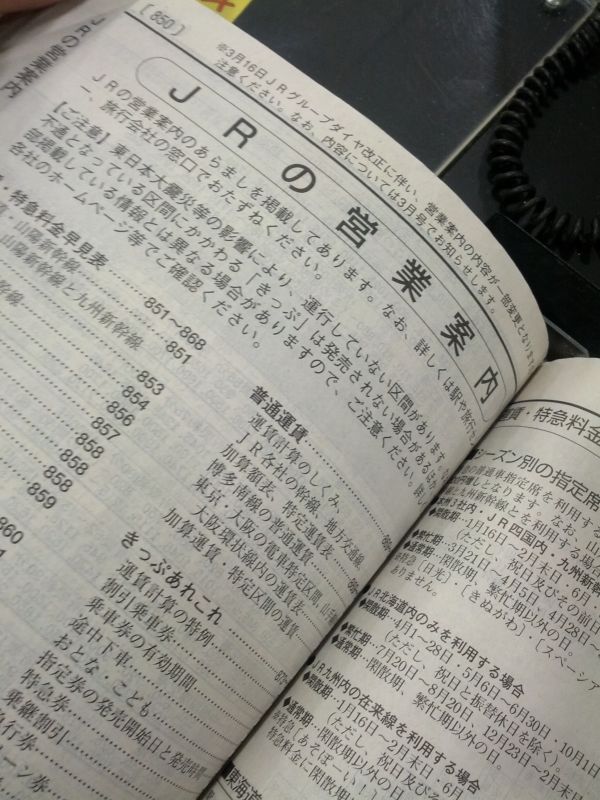 [850]
JRの営業案内
※3月16日JRグループダイヤ改正に伴い、営業案内の内容が一部変更となりま
注意ください。なお、内容については3月号でお知らせします。
JRの営業案内
JRの営業案内のあらましを掲載してあります。なお、詳しくは駅や旅行
ー、旅行会社の窓口でおたずねください。
【ご注意】東日本大震災等の影響により、運行していない区間があります。
不通となっている区間にかかわる「きっぷ」は発売されない場合がある
部掲載している情報とは異なる場合がありますので、ご注意ください。
各社のホームページ等でご確認ください。
・特急料金早見表 851〜868
山陽新幹線 851
山陽新幹線と九州新幹線
853
854
856
857
858
858
858
859
860
普通運賃
運賃計算のしくみ
JR各社の幹線、地方交通線
加算額表、特定運賃表
博多南線の普通運賃
東京・大阪の電車特定区間、山手
大阪環状線内の運賃表
加算運賃・特定区間の運賃
きっぷあれこれ
運賃計算の特例
割引乗車券
乗車券の有効期間
途中下車
おとな・こども
指定券の発売開始日と発売時間
特急券
乗継割引
急行券
ーン券
・特急料金
シーズン別の指定席
の普通車指定席を利用する
JR四国内・九州新幹
◆閑散期…1月16日〜2月末日・6月
(ただし、祝日及びその前日
◆繁忙期…3月21日〜4月5日、4月28日〜
◆通常期…閑散期、繁忙期以外の日。
(日光)(きぬがわ)・[スペーシア
ありません。
JR北海道内のみを利用する場合
◆閑散期…4月1〜28日・5月6日〜6月30日・10月1
(ただし、祝日と振替休日を除く)。
◆繁忙期…7月20日〜8月20日、12月23日〜2月末
◆通常期…閑散期、繁忙期以外の日。
JR九州内の在来線を利用する場合
◆閑散期…1月16日〜2月末日・6月
(ただし、祝日及びその
◆通常期…閑散期以外の日
※特急(あそぼーい!)
特急料金に閑散期
東海道